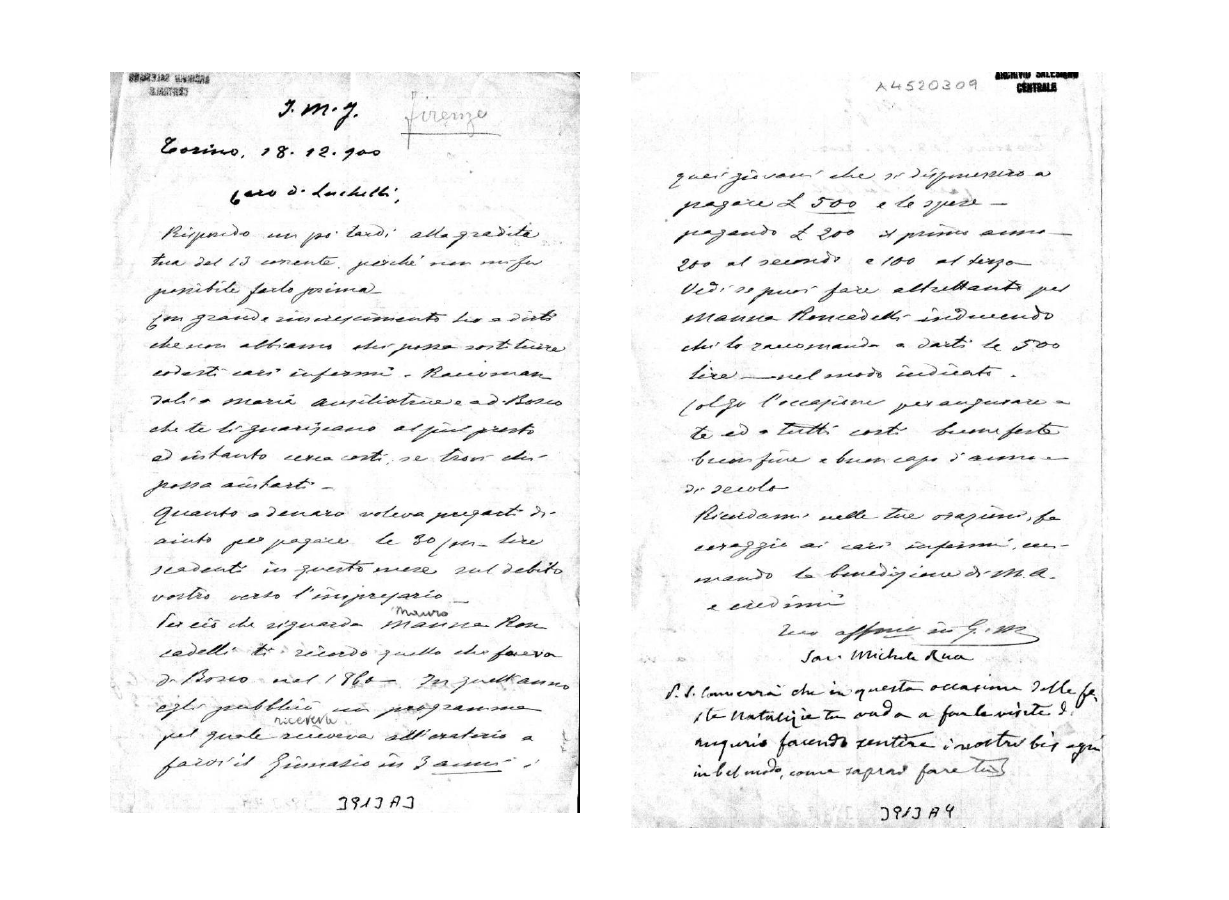 J. M. J.
Firenze
Torino, 18. 12. 900
Caro D. Luchelli,
Rispondo un po' tardi alla gradita
tua del 13 corrente perché non mi fu
possibile farlo prima
Con grande rincrescimento ho a dirti
che non abbiamo chi possa sostituire
codesti cari infermi. Raccoman
dali a Maria Ausiliatrice e a D. Bosco
che te li guariscano al più presto
ed intanto cerca costì, se trovi chi
possa aiutarti
Quanto a denaro voleva pregarti di
aiuto per pagare le 30/m lire
scadenti in questo mese sul debito
vostro verso l'impresario
Mauro
Per ciò che riguarda Manna Ron
cadelli ti ricordo quello che faceva
D. Bosco nel 1860 In quell'anno
egli pubblicò un programma
riceveva
pel quale riceveva all'oratorio a
farvi il Ginnasio in 3 anni i
3913 A3
ARCHIVIO SALESIANO
CENTRALE
A4520309
quei giovani che si disponessero a
pagare £ 500 e le spese
pagando £ 200 il primo anno
200 al secondo e 100 al terzo
Vedi se puoi fare altrettanto pel
Manna Roncadelli inducendo
chi lo raccomanda a darti le 500
lire nel modo indicato.
Colgo l'occasione per augurare a
te ed a tutti costì buone feste
buon fine e buon capo d'anno e
di secolo
Ricordami nelle tue orazioni, fa
coraggio ai cari infermi, 
mando la benedizione di M. A.
e credimi
Tuo affmo in G. e M
Sac. Michele Rua
P. S. Converrà che in questa occasione delle fe
ste Natalizie tu vada a fare le visite d'
augurio facendo sentire i nostri bisogni
in bel modo, come saprai fare tu
3913 A4